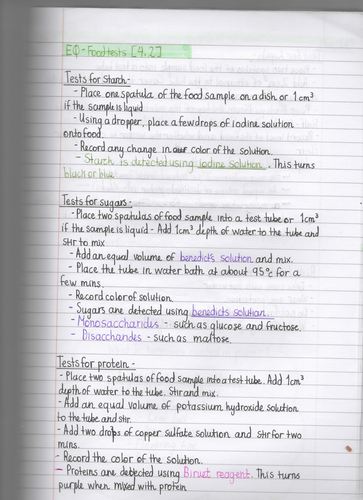 EQ - Food tests [4.2]
Tests for starch -
- Place one spatula of the food sample on a dish or 1cm³
if the sample is liquid
- Using a dropper, place a few drops of iodine solution
onto food.
- Record any change in our color of the solution.
- Starch is detected using iodine solution. This turns
black or blue
Tests for sugars -
- Place two spatulas of food sample into a test tube or 1cm³
if the sample is liquid - Add 1cm³ depth of water to the tube and
stir to mix
- Add an equal volume of benedict's solution and mix.
- Place the tube in water bath at about 95°C for a
few mins.
- Record color of solution
- Sugars are detected using benedicts solution.
- Monosaccharides - such as glucose and fructose.
- Disaccharides - such as maltose.
Tests for protein -
- Place two spatulas of food sample into a test tube. Add 1cm³
depth of water to the tube. Stir and mix.
- Add an equal volume of potassium hydroxide solution
to the tube and stir.
- Add two drops of copper sulfate solution and stir for two
mins.
- Record the color of the solution.
- Proteins are detected using Biruet reagent. This turns
purple when mixed with protein